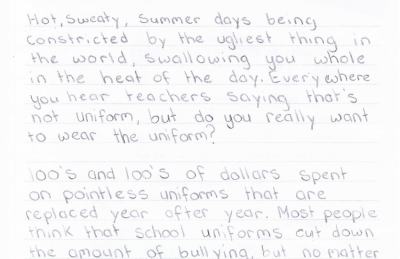 Hot, Sweaty, Summer days being
constricted by the ugliest thing in
the world, swallowing you whole
in the heat of the day. Everywhere
you hear teachers saying that's
not uniform, but do you really want
to wear the uniform?
100's and 100's of dollars spent
on pointless uniforms that are
replaced year after year. Most people
think that school uniforms cut down
the amount of bullying, but no matter